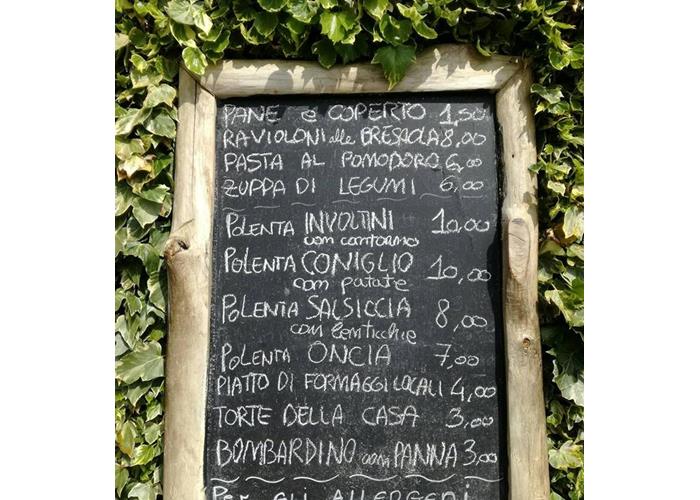 PANE e COPERTO 1,50
RAVIOLONI alla BRESAOLA 8,00
PASTA AL POMODORO 6,00
ZUPPA DI LEGUMI 6,00
POLENTA INVOLTINI 10,00
con contorno
POLENTA CONIGLIO 10,00
con patate
POLENTA SALSICCIA 8,00
con lenticchie
POLENTA ONCIA 7,00
PIATTO DI FORMAGGI LOCALI 4,00
TORTE DELLA CASA 3,00
BOMBARDINO con PANNA 3,00
PER GLI ALLERGENI